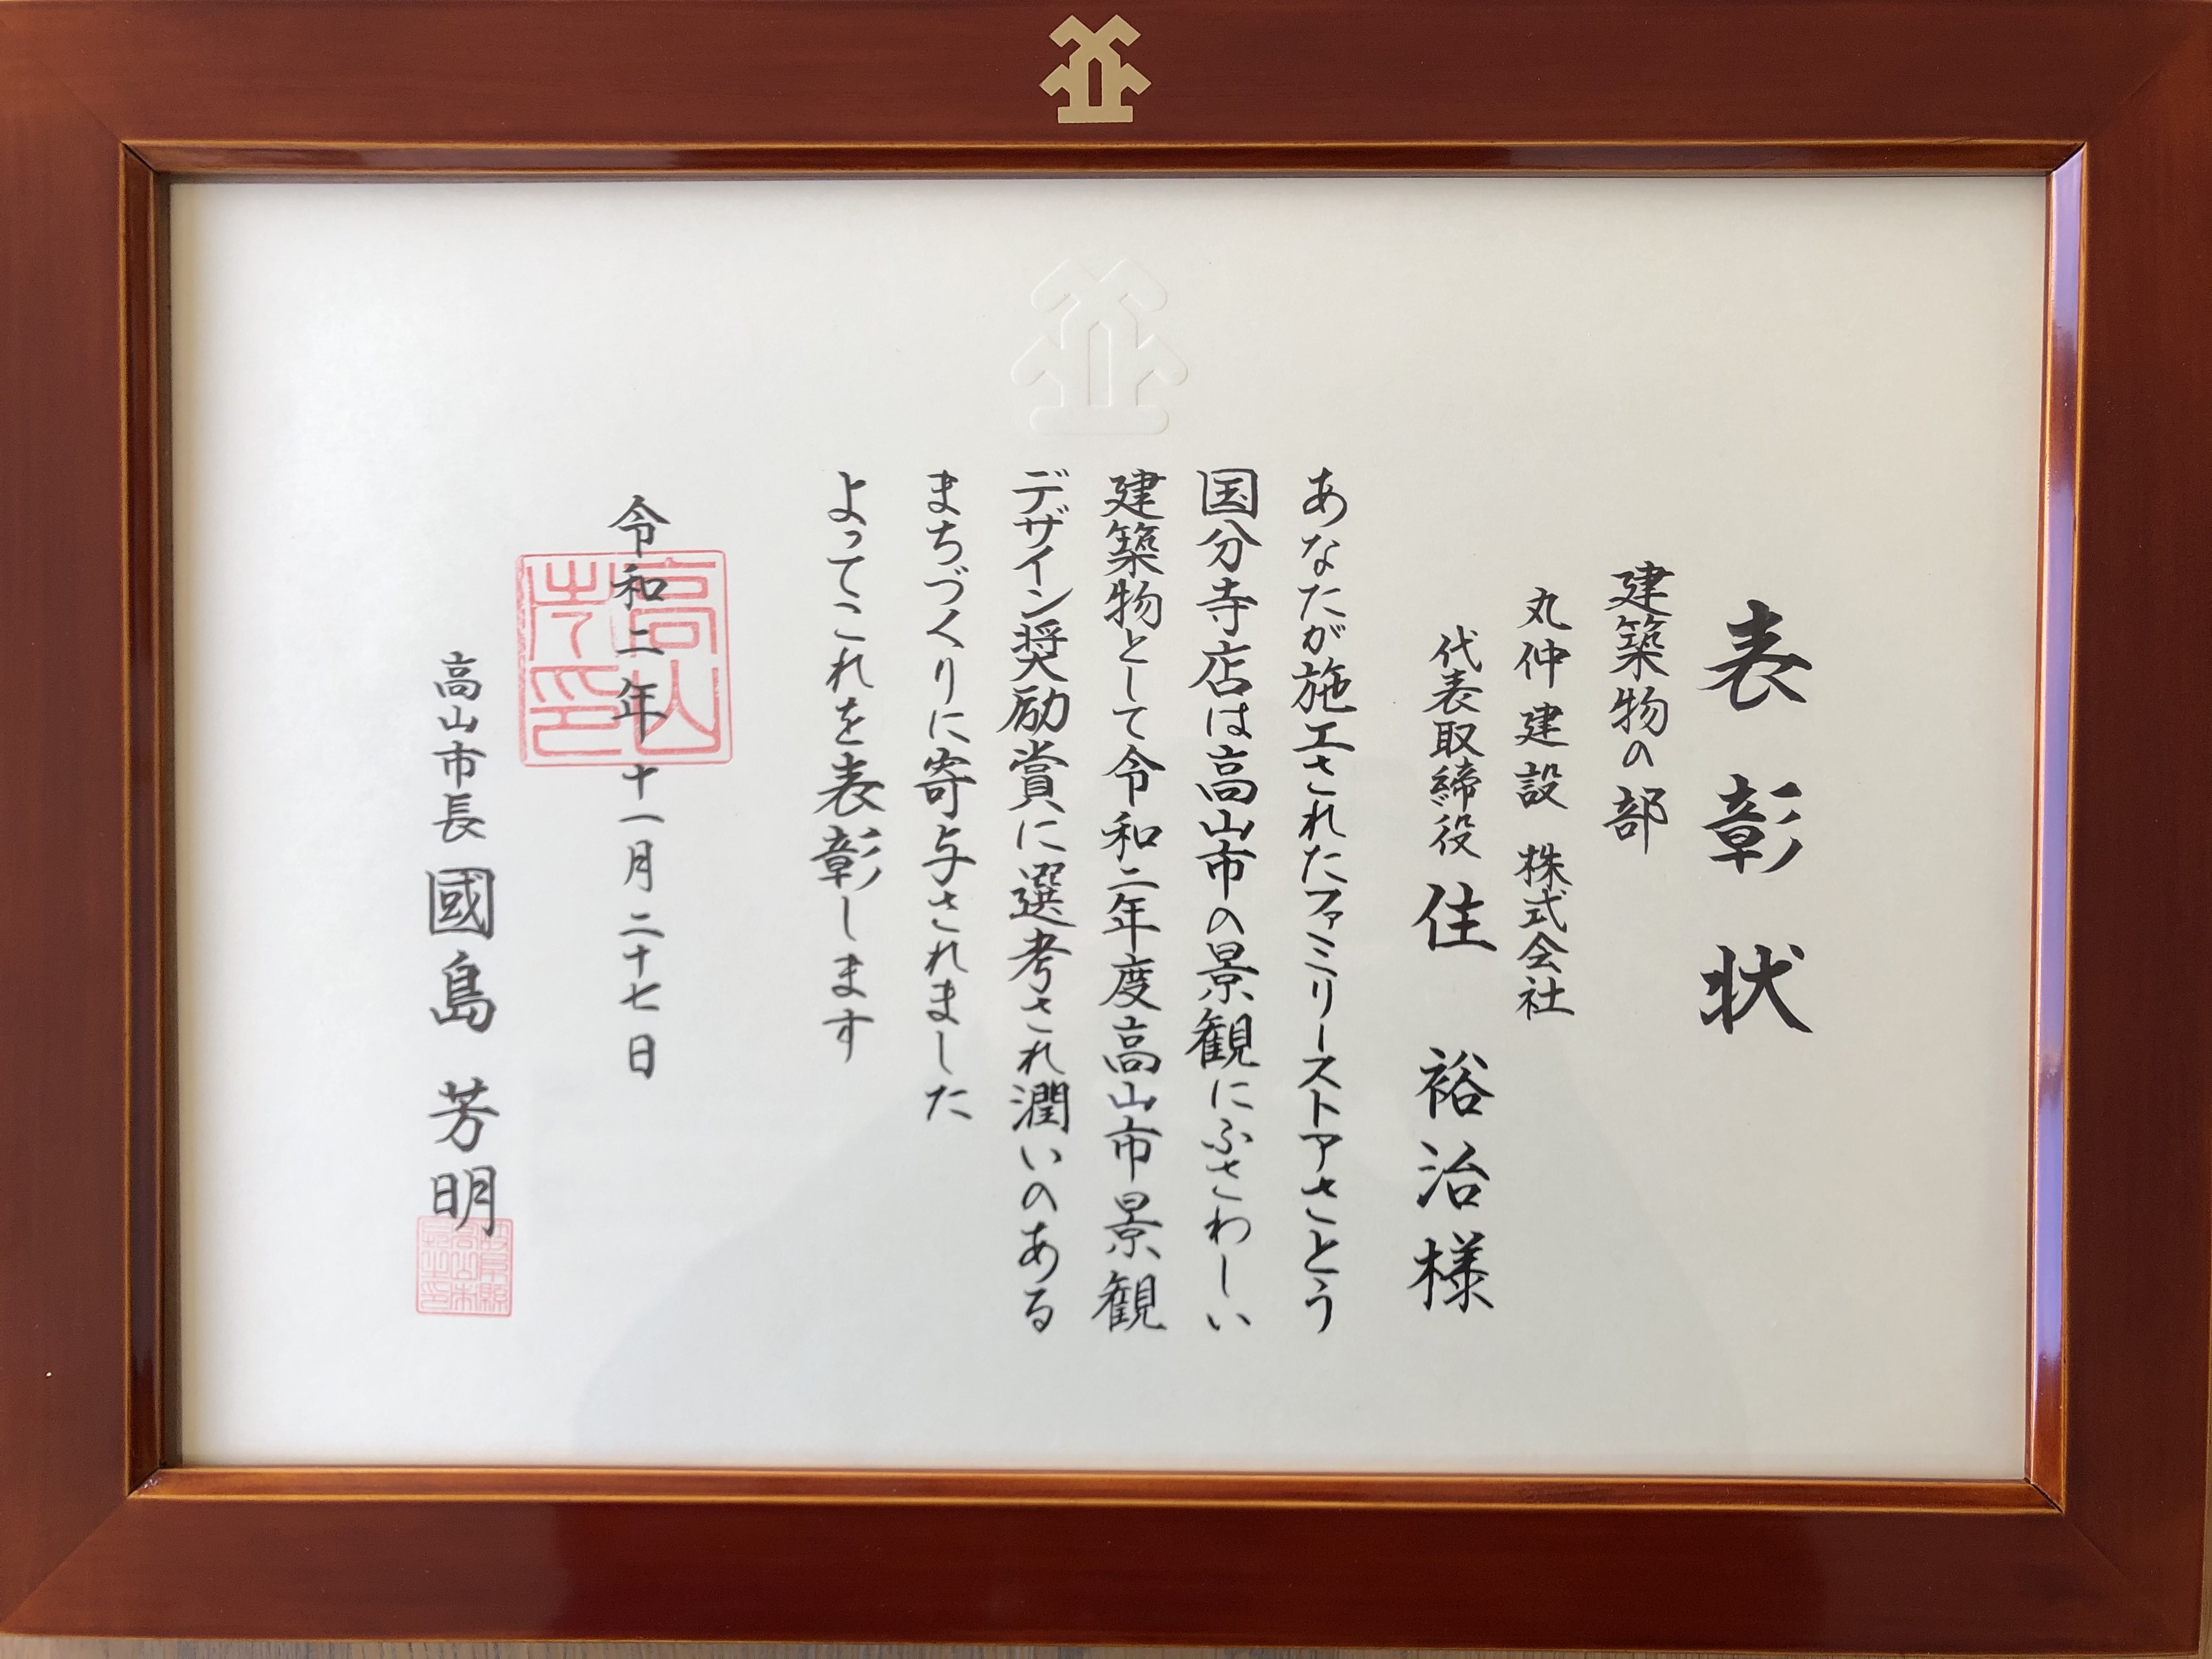 表彰状
建築物の部
丸仲建設 株式会社
代表取締役 住 裕治様
あなたが施工されたファミリーストアさとう
国分寺店は高山市の景観にふさわしい
建築物として令和二年度高山市景観
デザイン奨励賞に選考され潤いのある
まちづくりに寄与されました
よってこれを表彰します
令和二年十一月二十七日
高山市印
高山市長 國島 芳明